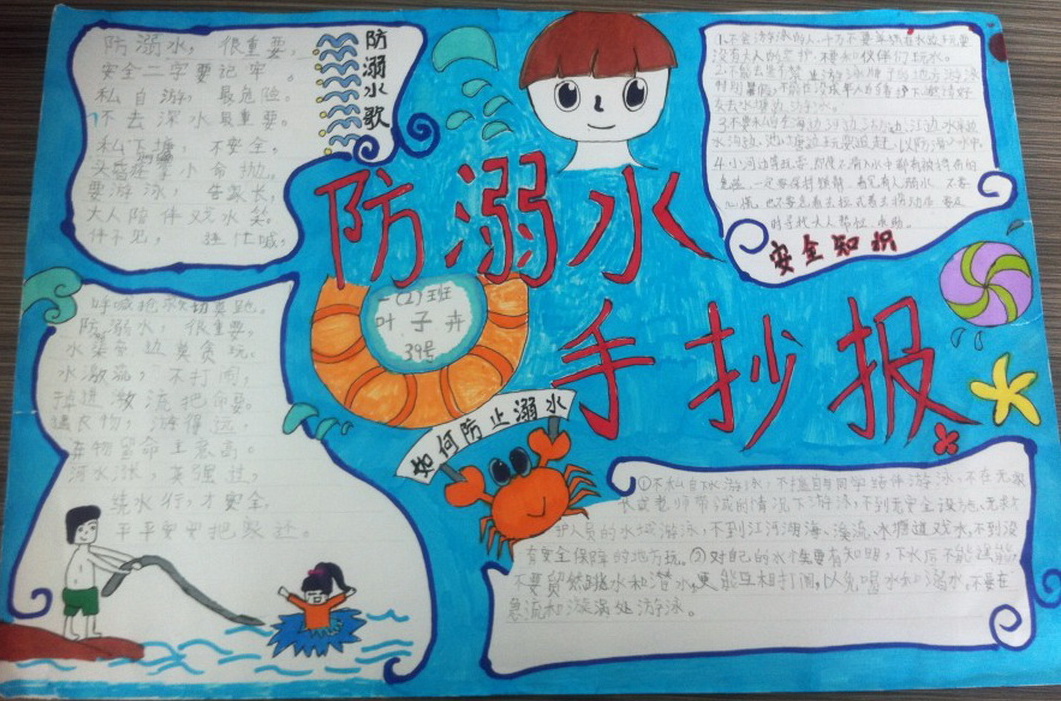 防溺水歌
防溺水，很重要，
安全二字要记牢。
私自游，最危险。
不去深水最重要。
私下塘，不安全，
小命抛。
要游泳，告家长，
大人陪伴戏水笑。
伴不见，
呼喊抢救
防溺水，很重要。
水渠旁边莫贪玩。
水激流，不打闹，
掉进激流把命要。
遇衣物，游得远，
弃物留命主意高。
河水涨，莫强过，
绕水行，才安全，
平平安安把家还。
防溺水
手抄报
一(2)班
叶子卉
39号
1、不会游泳的人，千万不要单独在水边玩耍
没有大人的监护，不要和伙伴们玩水。
2、不能去
游泳牌子的地方游泳
去水塘边游水。
3、不要私自在海边、河边、湖边、江边、水库边
水沟边、池塘边玩耍追赶，以防滑入水中。
4、小河边
一定要保持镇静，看见有人溺水，不要
时寻找大人帮忙，求助。
安全知识
如何防止溺水
①不私自下水游泳，不擅自与同学结伴游泳，不在无家
长或老师带领的情况下游泳，不到无安全设施、无救
护人员的水域游泳，不到江河湖海、溪流、水塘道戏水，不到没
有安全保障的地方玩。②对自己的水性要有知明，下水后不能逞能，
不要贸然跳水和潜水，更能互相打闹，以免喝水和溺水，不要在
急流和漩涡处游泳。